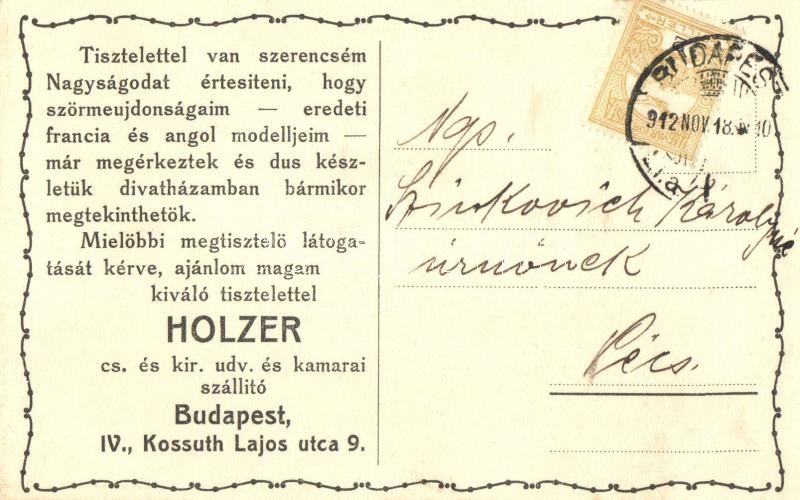 Tisztelettel van szerencsém
Nagyságodat értesiteni, hogy
szörmeujdonságaim — eredeti
francia és angol modelljeim —
már megérkeztek és dus kész-
letük divatházamban bármikor
megtekinthetök.
Mielöbbi megtisztelö látoga-
tását kérve, ajánlom magam
kiváló tisztelettel
HOLZER
cs. és kir. udv. és kamarai
szállitó
Budapest,
IV., Kossuth Lajos utca 9.
BUDAPEST
912 NOV. 18.
Ngs.
Károlyné
úrnőnek
Pécs.